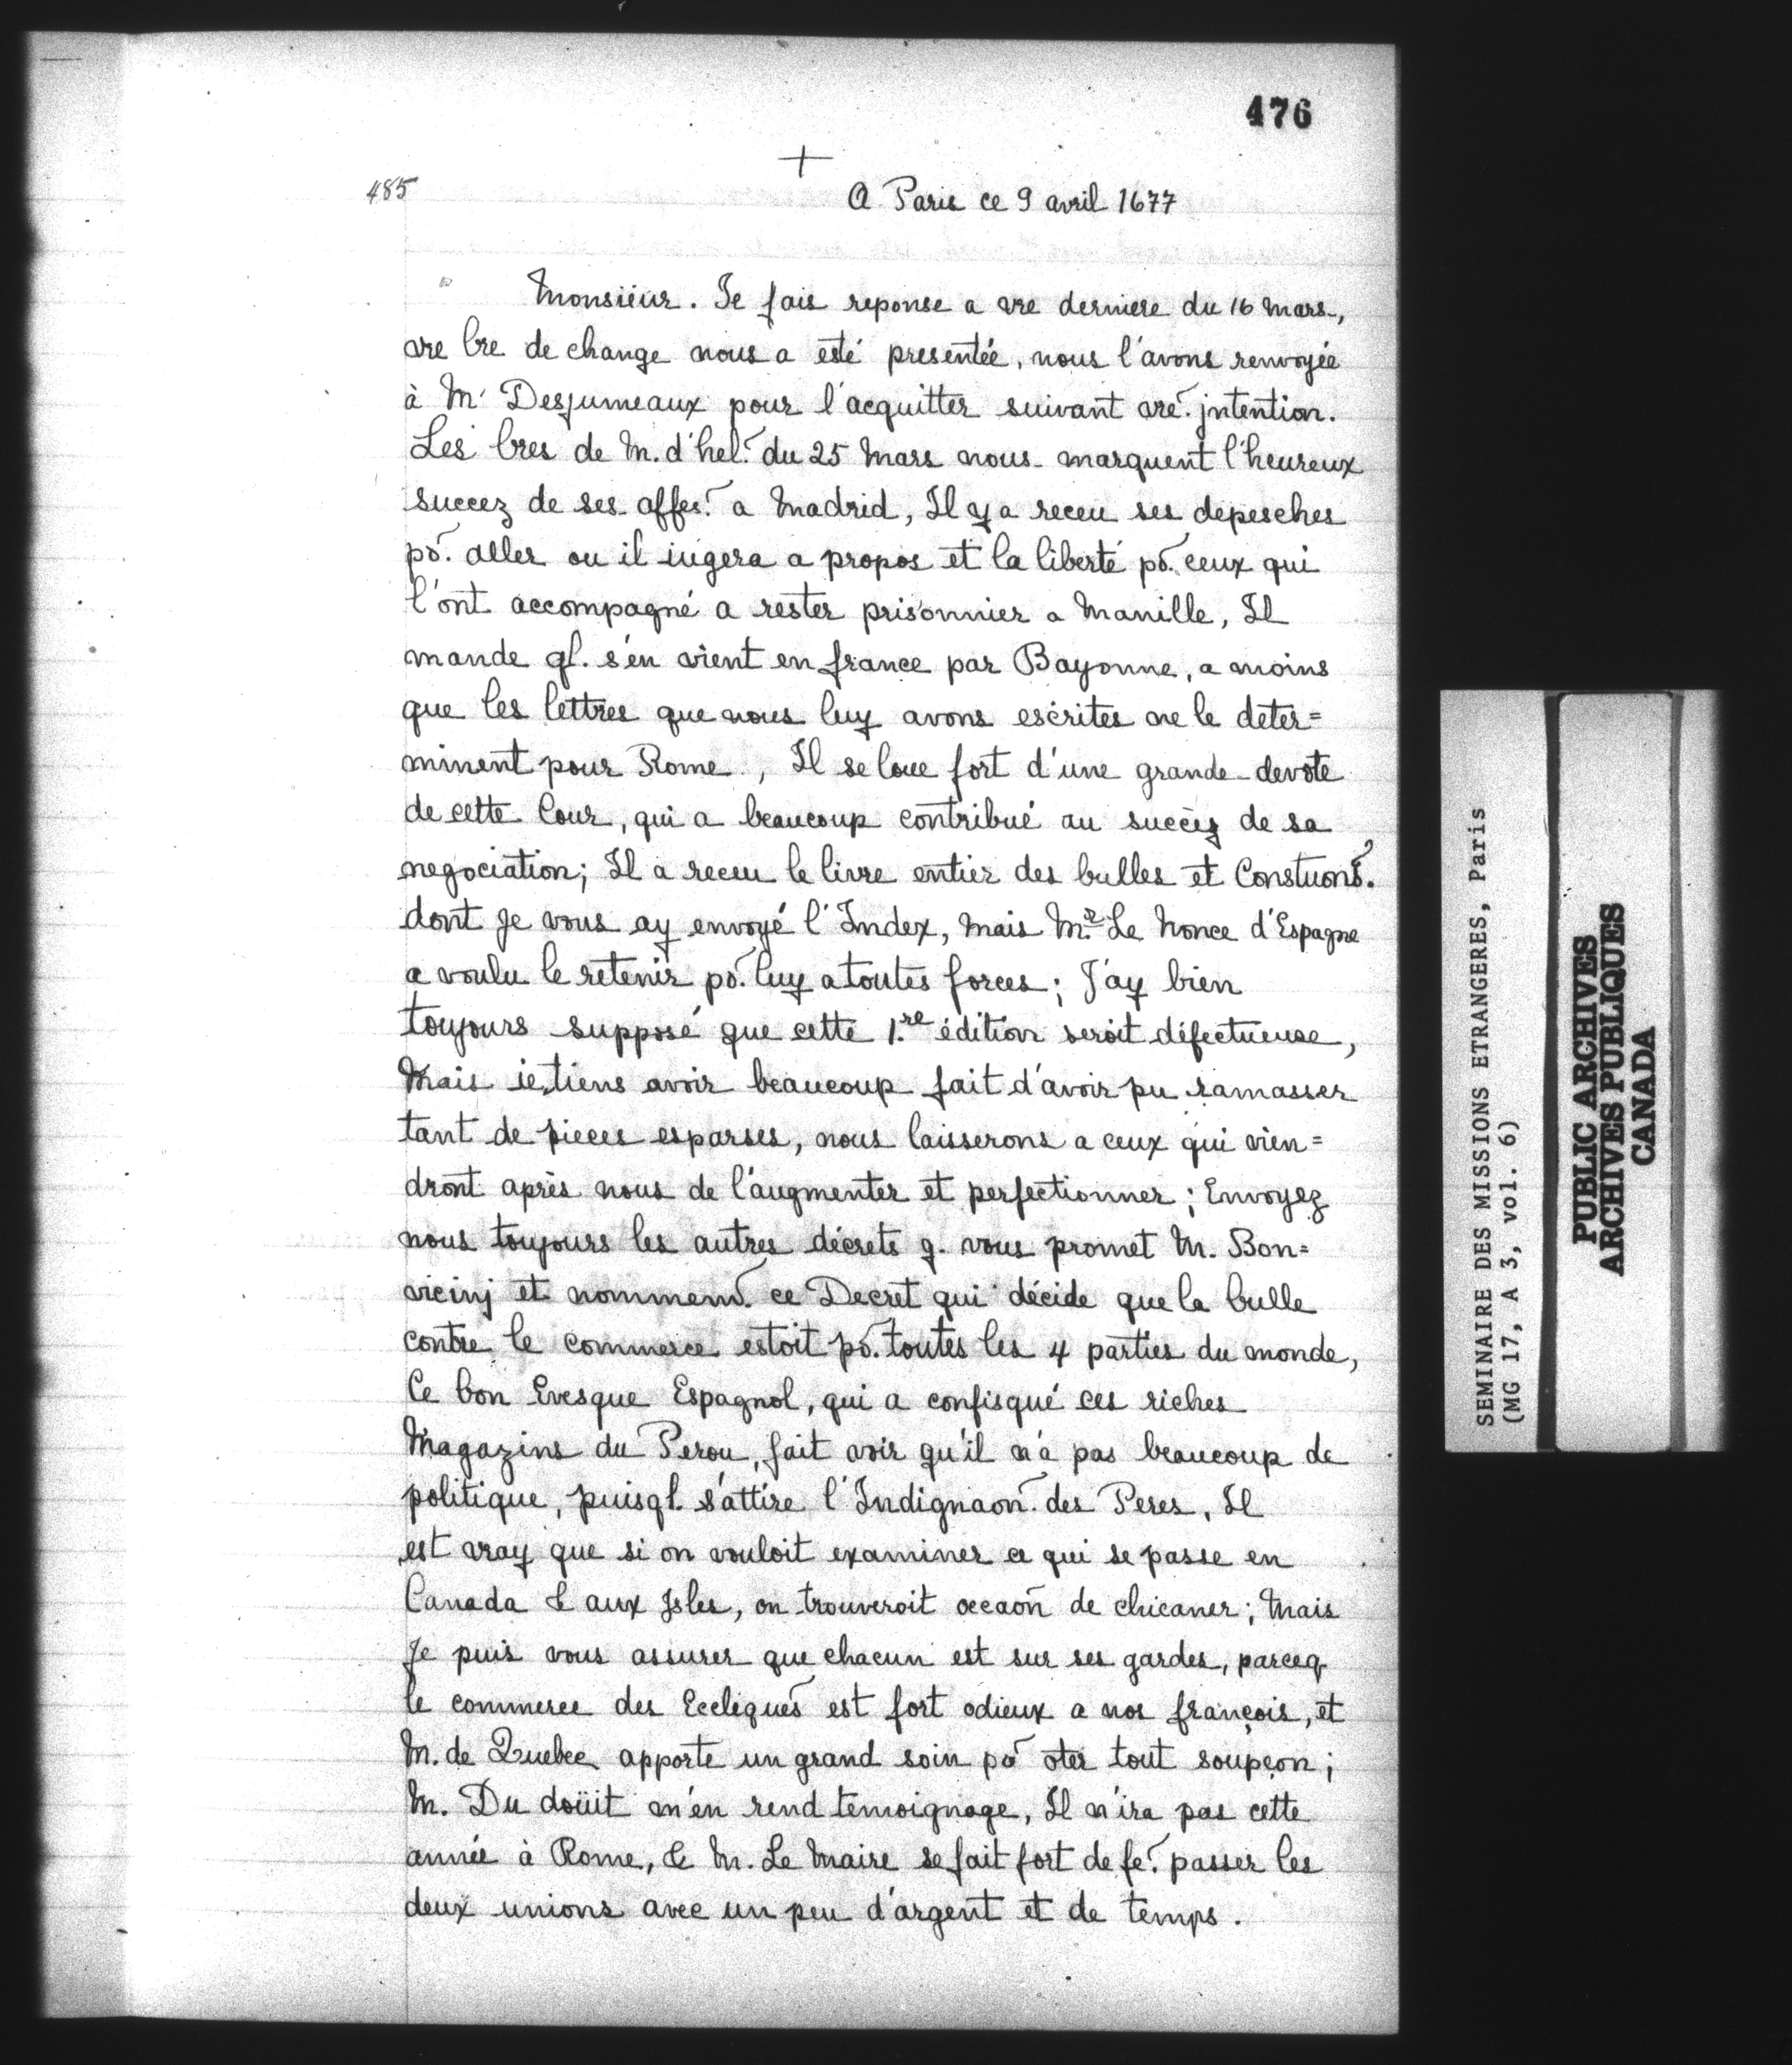 476
+
485
A Paris ce 9 avril 1677
Monsieur. Je fais reponse a vre derniere du 16 Mars,
vre lre de change nous a esté presentée, nous l'avons renvoyée
à Mr Desjumeaux pour l'acquitter suivant vre. jntention.
Les lres de M. d'hel. du 25 Mars nous marquent l'heureux
succez de ses affes. a Madrid, Il y a receu ses depesches
pō. aller ou il iugera a propos et la liberté pō. ceux qui
l'ont accompagné a rester prisonnier a Manille, Il
mande ql. s'en vient en france par Bayonne, a moins
que les lettres que nous luy avons escrites ne le deter=
minent pour Rome, Il se loue fort d'une grande devote
de cette Cour, qui a beaucoup contribué au succèz de sa
negociation; Il a receu le livre entier des bulles et Constuons.
dont Je vous ay envoyé l'Index, mais Mr. Le Nonce d'Espagne
a voulu le retenir pō. luy a toutes forces; J'ay bien
toujours supposé que cette 1.re édition seroit défectueuse,
Mais ie tiens avoir beaucoup fait d'avoir pu ramasser
tant de pieces esparses, nous laisserons a ceux qui vien=
dront après nous de l'augmenter et perfectionner; Envoyez
nous toujours les autres décrets q. vous promet M. Bon=
vicinj et nommem. ce Decret qui décide que la bulle
contre le commerce estoit pō. toutes les 4 parties du monde,
Ce bon Evesque Espagnol, qui a confisqué ces riches
Magazins du Perou, fait voir qu'il n'a pas beaucoup de
politique, puisql. s'attire l'Indignaon. des Peres, Il
est vray que si on vouloit examiner ce qui se passe en
Canada & aux Jsles, on trouveroit occaōn de chicaner; Mais
Je puis vous assurer que chacun est sur ses gardes, parceq
le commerce des Eccliques est fort odieux a nos françois, et
M. de Quebec apporte un grand soin pō oter tout soupçon;
M. Du doüit m'en rend temoignage, Il n'ira pas cette
année à Rome, & M. Le Maire se fait fort de fe. passer les
deux unions avec un peu d'argent et de temps.
SEMINAIRE DES MISSIONS ETRANGERES, Paris
(MG 17, A 3, vol. 6)
PUBLIC ARCHIVES
ARCHIVES PUBLIQUES
CANADA